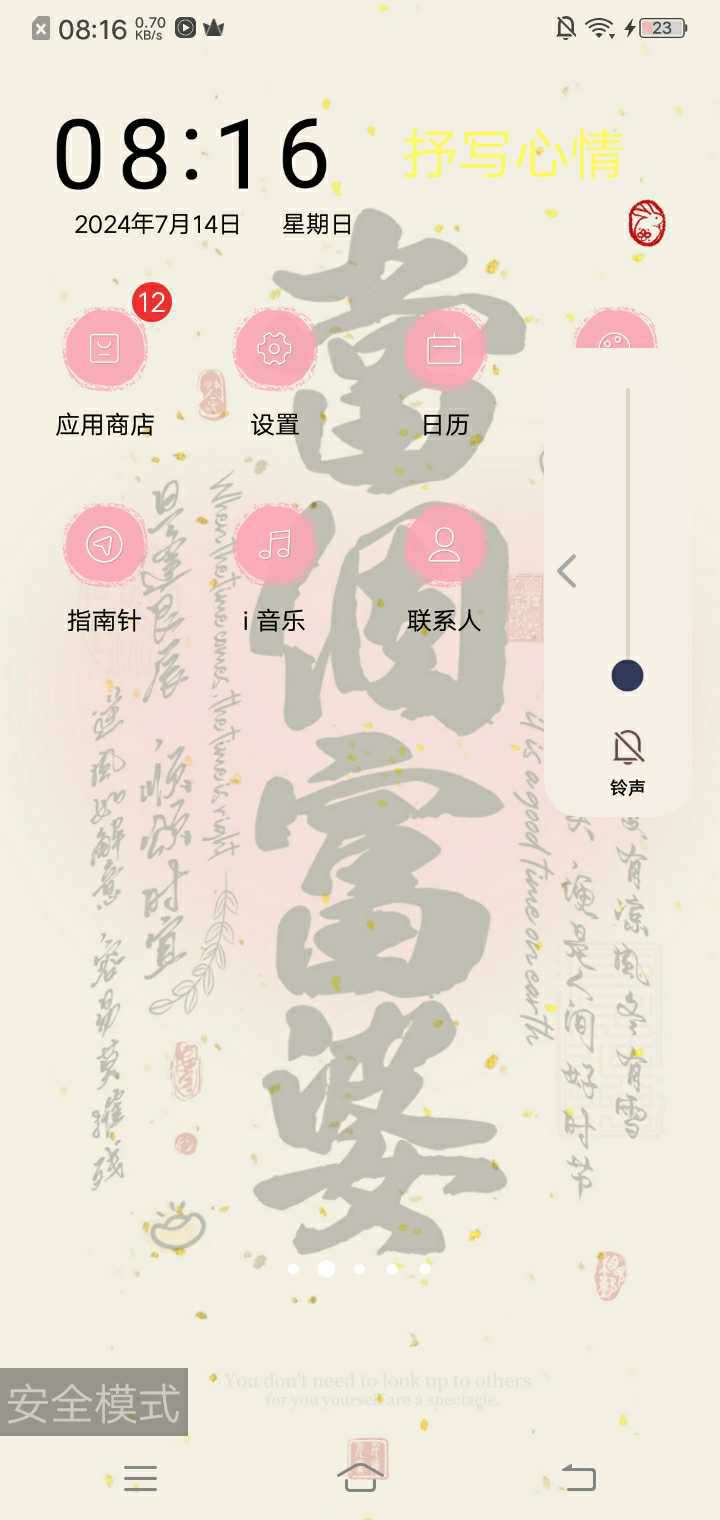 08:16 0.70 KB/s 23
08:16
抒写心情
2024年7月14日 星期日
12
应用商店 设置 日历
指南针 i 音乐 联系人
铃声
當個富婆
When the time comes, the time is right
良辰
,顺颂时宜
逆风如解意 容易莫摧残
it is a good time on earth
有凉风冬有雪
便是人间好时节
You don't need to look up to others
for you yourself are a spectacle.
安全模式